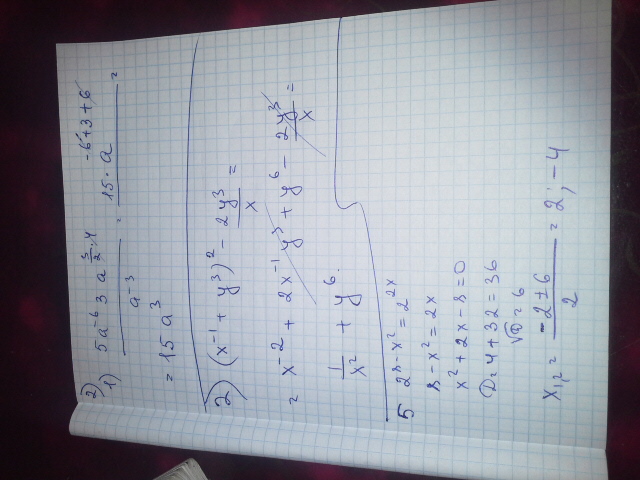 2)
1) 5a⁻⁶ 3 a^(3/2 · 4) / a⁻³ = 15 · a^(-6+3+6) / =
= 15 a³
2) (x⁻¹ + y³)² - 2y³/x =
= x⁻² + 2x⁻¹ y³ + y⁶ - 2y³/x =
1/x² + y⁶.
5 2^(8-x²) = 2^(2x)
8 - x² = 2x
x² + 2x - 8 = 0
D = 4 + 32 = 36
√D = 6
x₁,₂ = (-2 ± 6)/2 = 2; -4